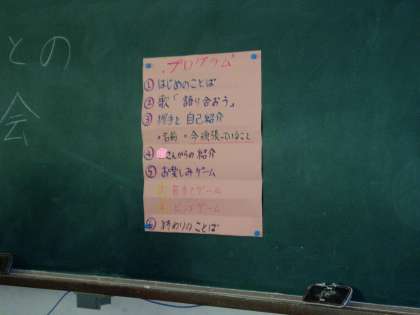 との
会
プログラム
① はじめのことば
② 歌「語り合おう」
③ 握手と自己紹介
・名前 ・今頑張っていること
④ さんからの紹介
⑤ お楽しみゲーム
ゲーム
ビンゴゲーム
⑥ 終わりのことば